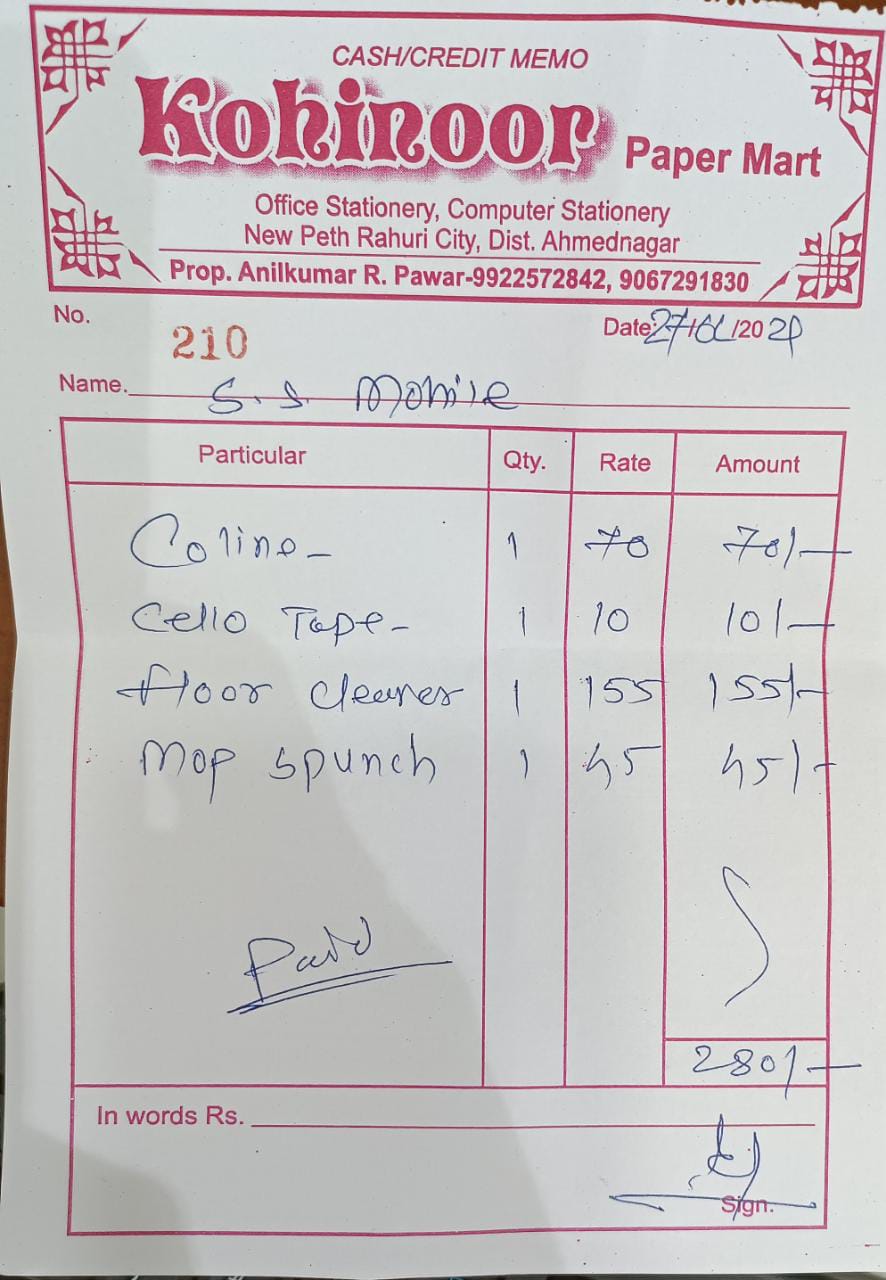 CASH/CREDIT MEMO
Kohinoor Paper Mart
Office Stationery, Computer Stationery
New Peth Rahuri City, Dist. Ahmednagar
Prop. Anilkumar R. Pawar-9922572842, 9067291830
No. 210
Date: 27/ /20
Name. S.S. Mobile
Particular Qty. Rate Amount
Coline - 1 70 70/-
Cello Tape - 1 10 10/-
floor cleaner 1 155 155/-
Mop spunch 1 45 45/-
Paid
280/-
In words Rs.
Sign.